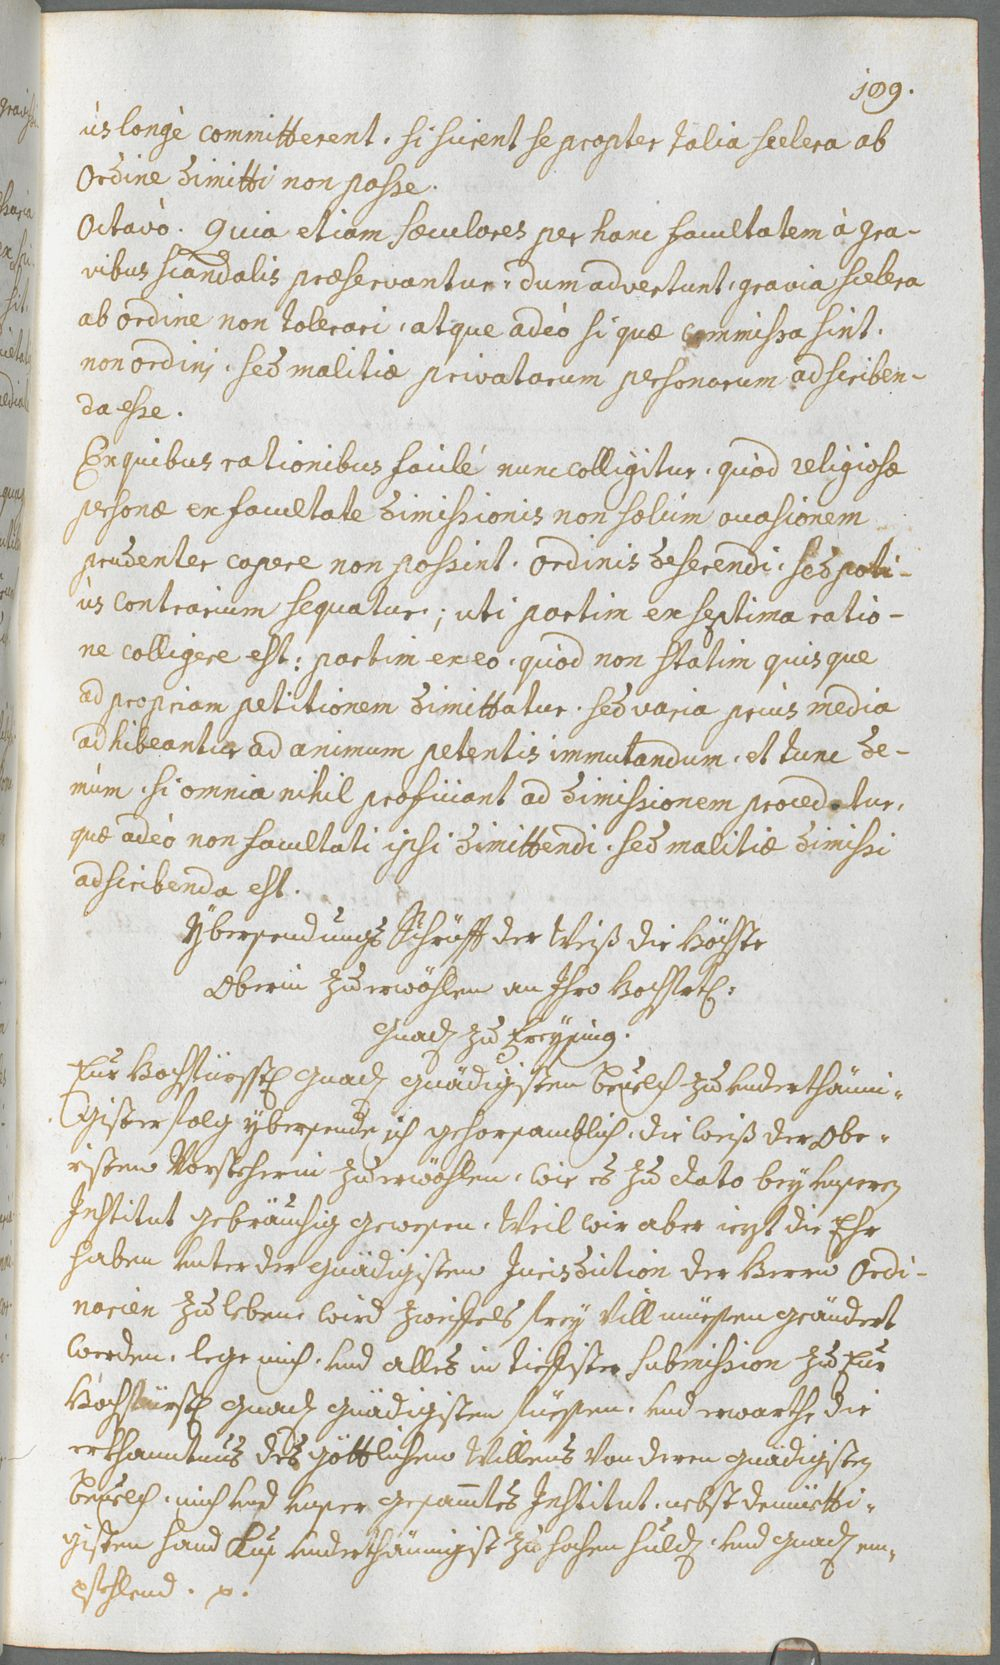 109.
ùs longè committerent, si scirent se propter talia scelera ab
Ordine dimitti non posse.
Octavò. Quia etiam sæculares per hanc facultatem à gra-
vibus scandalis præservantur, dum advertunt, gravia scelera
ab ordine non tolerari, atque adeò si quæ commissa sint,
non ordini, sed malitiæ privatarum personarum adscriben-
da esse.
Ex quibus rationibus facilé nunc colligitur, quòd religiosæ
personæ ex facultate dimissionis non solùm occasionem
prudenter capere non possint, ordinis deserendi, sed poti-
ùs contrarium sequatur; uti partim ex septima ratio-
ne colligere est; partim ex eo, quòd non statim quisque
ad propriam petitionem dimittatur, sed varia priùs media
adhibeantur ad animum petentis immutandum, et tunc de-
mùm, si omnia nihil proficiant ad dimissionem procedatur,
quæ adeò non facultati ipsi dimittendi, sed malitiæ dimissi
adscribenda est.
Ybersendungs Schrüfft der Weiß die Höchste
Oberin zu erwöhlen an Ihro Hochfrtl:
Gnad zu Freysing.
Eur Hochfürstl Gnad gnädigisten Beuelch zu vnderthäni-
gister folg ybersende ich gehorsamblich, die weiß der Obe-
risten Vorsteherin zu erwöhlen, wie es zu dato bey vnseren
Institut gebräuchig gewesen, Weil wir aber iezt die Ehr
haben vnter der gnädigisten Jurisdiction der Herrn Ordi-
narien zu leben, wird zweiffels frey vill müessen geändert
werden, lege mich, vnd alles in tieffister submission zu Eur
Hochfürstl Gnad gnädigisten füessen, vnd erwarthe die
erkhanntnus des göttlichen Willens von deren gnädigisten
Beuelch, mich vnd vnser gesamtes Institut, nebst demüetti-
gisten hand Kuß vnderthänigist zu hohen huld, vnd gnad em-
pfehlend. p.